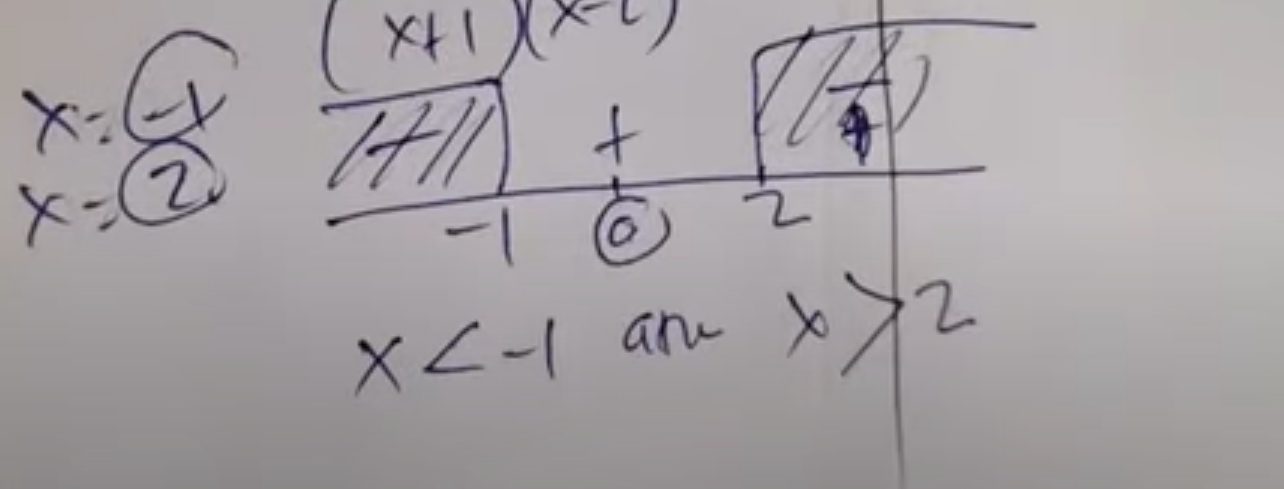 (x+1)(x-2)
x=-1
+
x=2
-1 0 2
x<-1 x>2